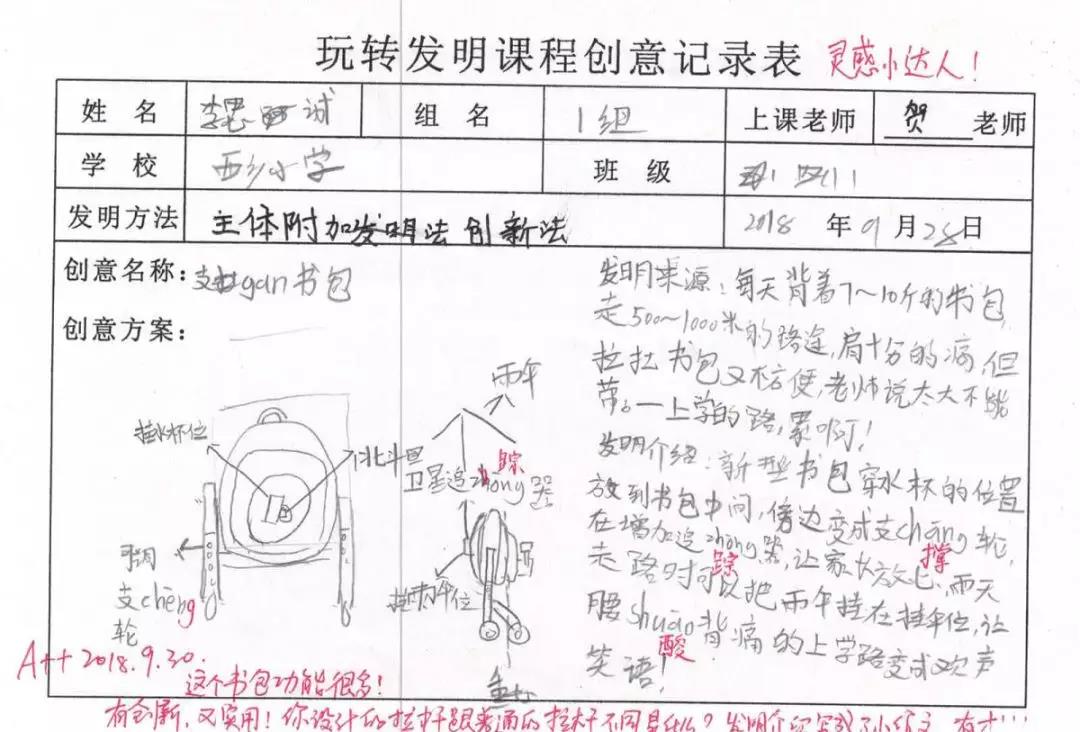 玩转发明课程创意记录表 灵感小达人！
姓 名 李思 诚 组 名 1组 上课老师 贺 老师
学 校 西乡小学 班 级 四(1)
发明方法 主体附加发明法 创新法 2018 年 9 月 28 日
创意名称：支gan书包
创意方案：
发明来源：每天背着7～10斤的书包,
走500～1000米的路途,肩十分的痛,但
拉拉书包又不方便,老师说太大不能
带。一上学的路,累啊！
发明介绍：新型书包穿水杯的位置
放到书包中间,傍边变成支chāng轮,
撑
在增加追zhōng器,让家长放心,雨天
踪
走路时可以把雨伞挂在挂伞位,让
腰shuān背痛的上学路变成欢声
酸
笑语！
挂水杯位
北斗
卫星追zhōng器
踪
雨伞
可调
支chēng
轮
挂雨伞位
A++ 2018.9.30.
这个书包功能很多！
有创新,又实用！你设计的拉杆跟普通的拉杆不同是什么？发明介绍写成了小作文,有才…